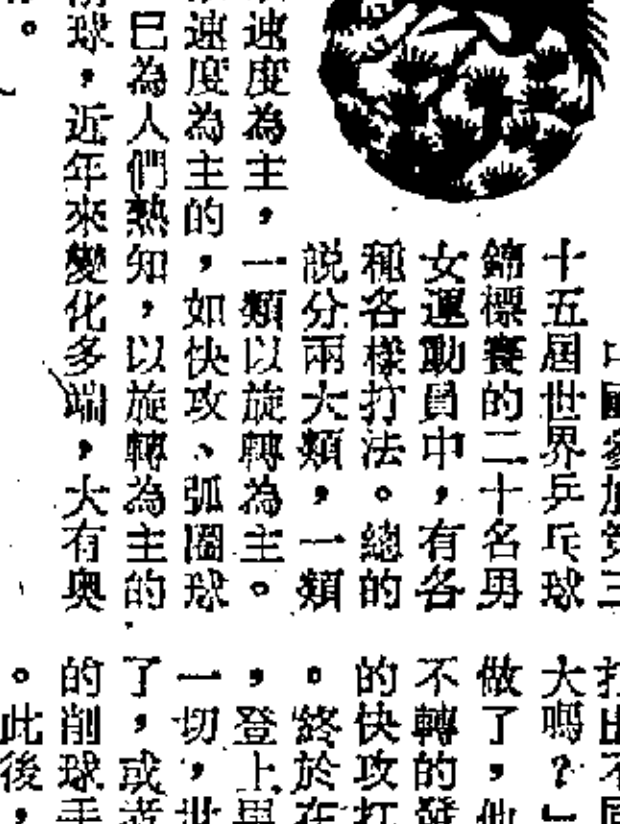 中國參加第三
十五屆世界乒乓球
錦標賽的二十名男
女運動員中，有各
種各樣打法。總的
説分兩大類，一類
速度為主，一類以旋轉為主。
速度為主的，如快攻、弧圈球
已為人們熱知，以旋轉為主的
球，近年來變化多端，大有奥
。
打出不同
大嗎？」
做了，他
不轉的發
的快攻打
。終於在
，登上男
一切，世
了，或者
的削球手
。此後，